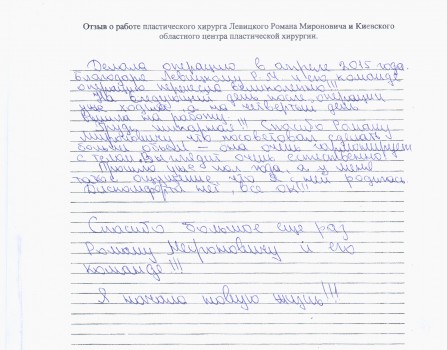 Отзыв о работе пластического хирурга Левицкого Романа Мироновича и Киевского
областного центра пластической хирургии.
Делала операцию в апреле 2015 года.
Благодаря Левицкому Р. М. и его команде
операцию перенесла великолепно!!!
На следующий день после операции
уже ходила а на четвертый день
вышла на работу.
Грудь шикарная!!! Спасибо Роману
Мироновичу, что посоветовал сделать
больший объем — она очень гармонирует
с телом. Выглядит очень естественно!!
Прошло уже пол года, а у меня
такое ощущение что я с ней родилась
Дискомфорта нет, все ок!!!
Спасибо большое еще раз
Роману Мироновичу и его
команде!!!
Я начала новую жизнь!!!